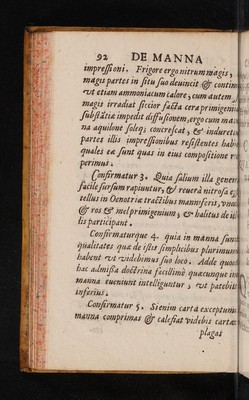 92 DE MANNA
impressioni. Frigore ergo nitrum magis,
magis partes in situ suo deuincit & contin
vt etiam ammoniacum calore, cum autem
magis irradiat siccior facta cera primigeni
substātia impedit diffusionem, ergo cum
na aquilone soleq; concrescat, & induret
partes illis impressionibus resistentes hab
quales ea sunt quas in eius compositione r
perimus.
Confirmatur 3. Quia salium illa gener
facile sursum rapiuntur, & reuera nitrosa e
tellus in Oenotriæ tractibus manniferis,
& ros & mel primigenium, & halitus de il
lis participant.
Confirmaturque 4. quia in manna sunt
qualitates quæ de istis simplicibus plurimum
habent vt videbimus suo loco. Adde quod
hac admissa doctrina facillimè quæcunque in
manna eueniunt intelliguntur, vt patebit
inferius.
Confirmatur 5. Si enim carta exceptum
manna comprimas & calefiat videbis cartæ
plagas